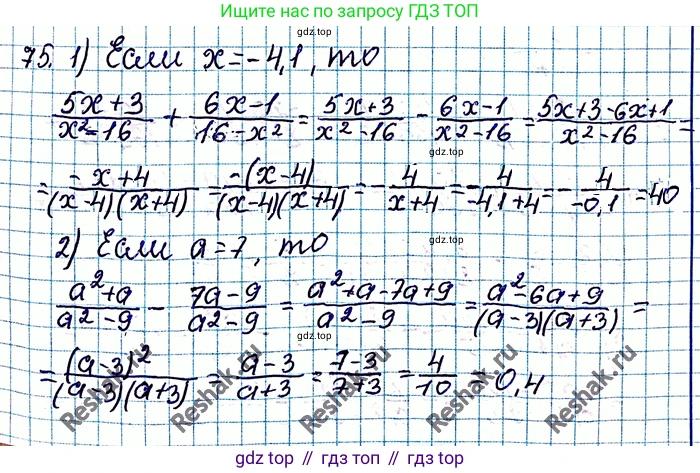 Ищите нас по запросу ГДЗ ТОП
gdz.top
75. 1) Если x = -4,1, то
(5x+3)/(x²-16) + (6x-1)/(16-x²) = (5x+3)/(x²-16) - (6x-1)/(x²-16) = (5x+3-6x+1)/(x²-16) =
= (-x+4)/((x-4)(x+4)) = (-(x-4))/((x-4)(x+4)) = - 4/(x+4) = - 4/(-4,1+4) = - 4/(-0,1) = 40
gdz.top
2) Если a = 7, то
(a²+a)/(a²-9) - (7a-9)/(a²-9) = (a²+a-7a+9)/(a²-9) = (a²-6a+9)/((a-3)(a+3)) =
= (a-3)²/((a-3)(a+3)) = (a-3)/(a+3) = (7-3)/(7+3) = 4/10 = 0,4
Reshak.ru
Reshak.ru
Reshak.ru
Reshak.ru
gdz.top
gdz top // гдз топ // gdz.top